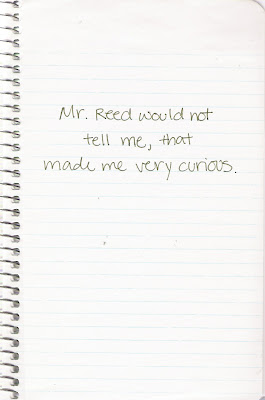 Mr. Reed would not
tell me, that
made me very curious.